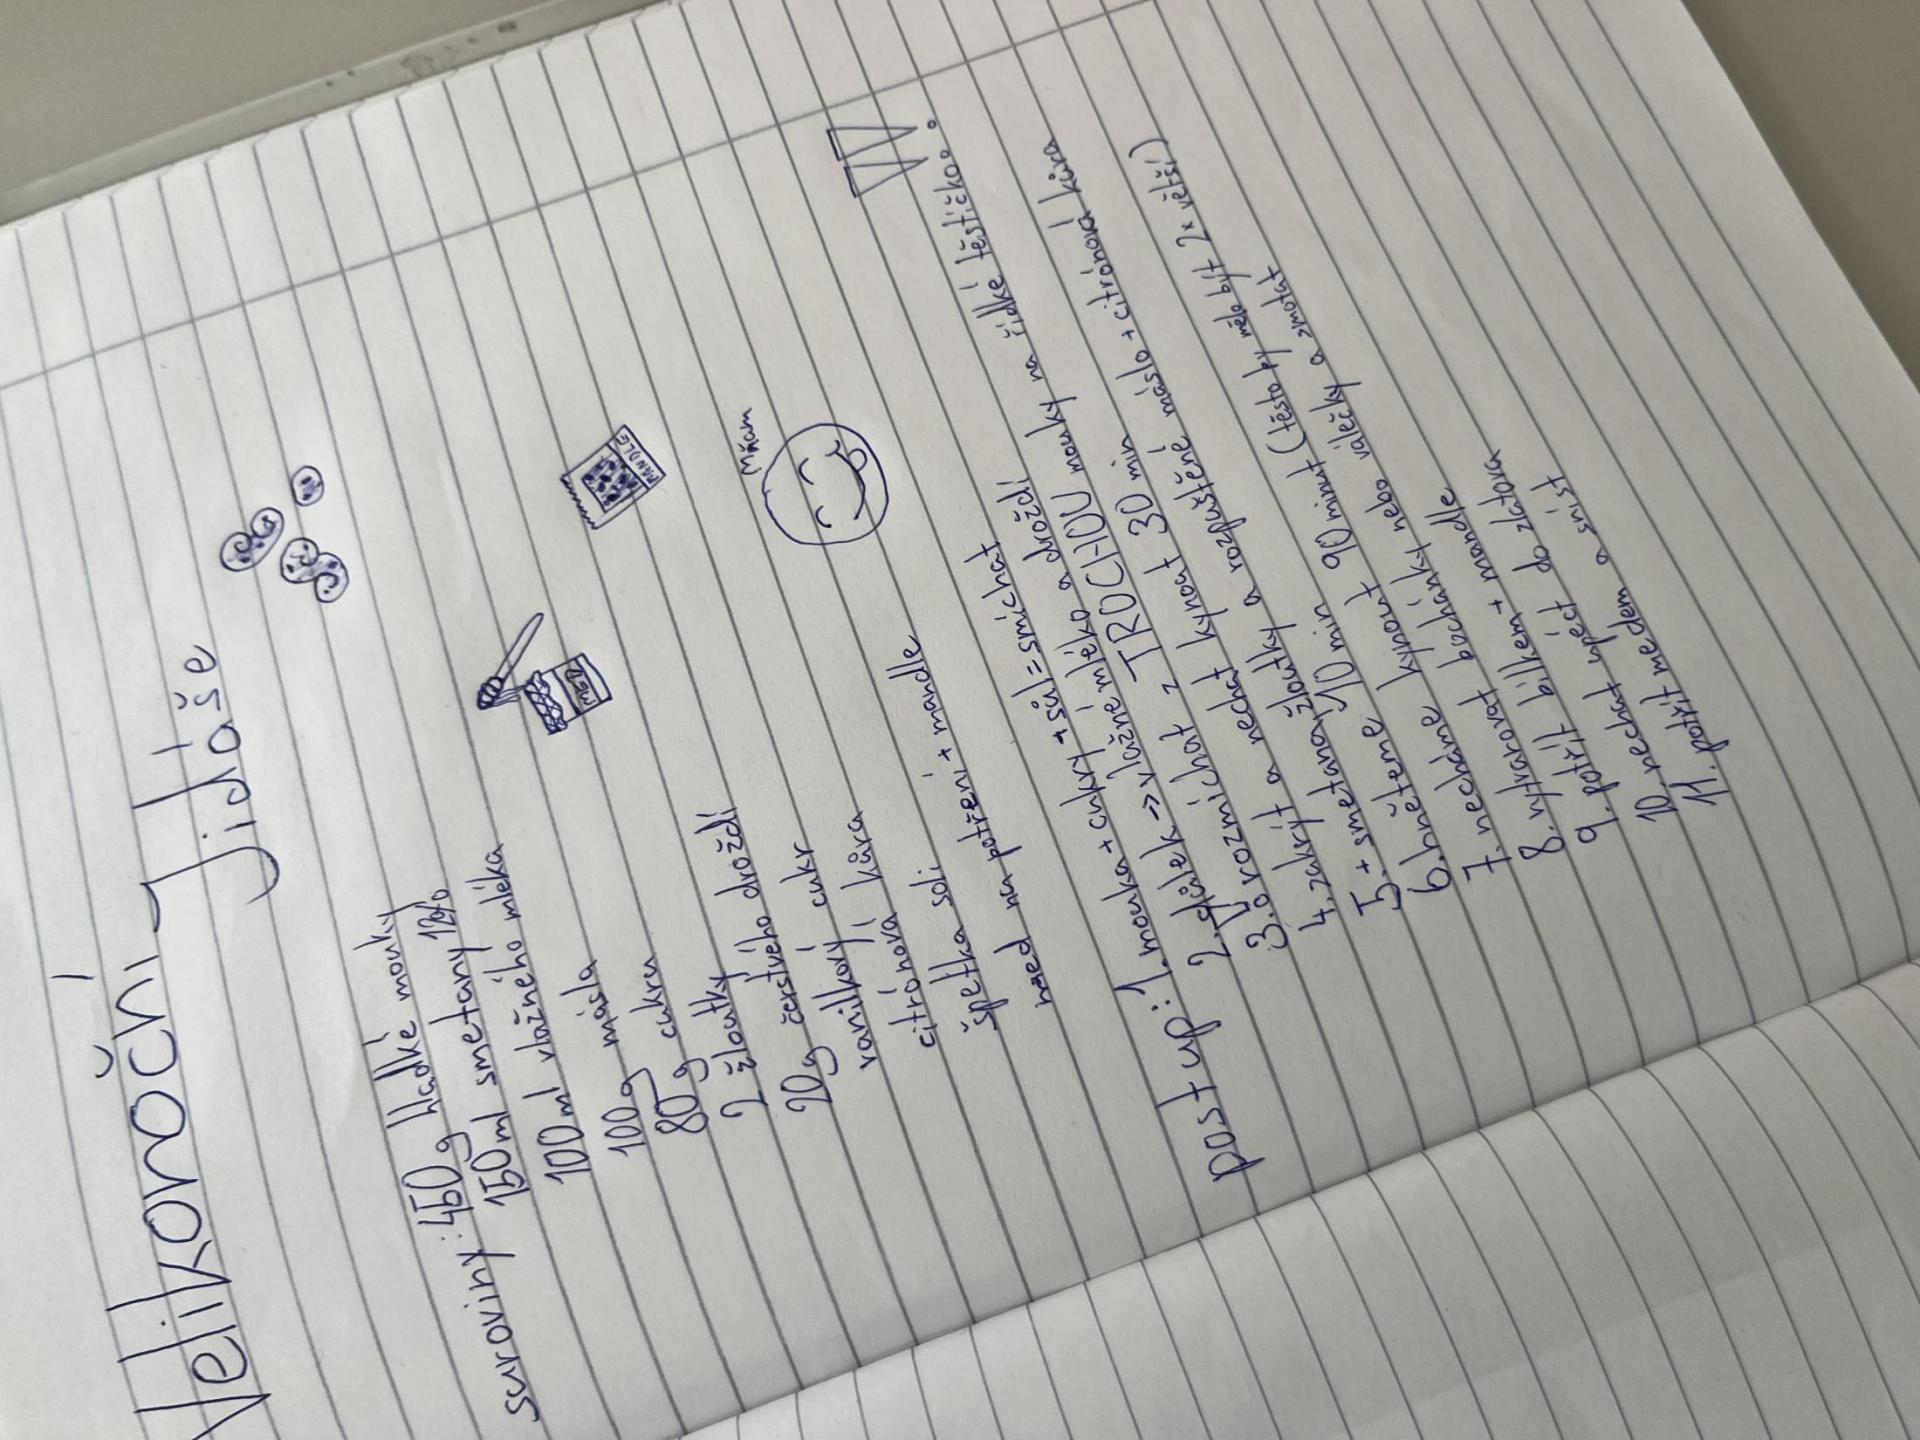 Velikonoční Jidáše
suroviny: 450g hladké mouky
150ml smetany 12%
100ml vlažného mléka
100g másla
80g cukru
2 žloutky
20g čerstvého droždí
vanilkový cukr
citrónová kůra
špetka soli
med na potření + mandle
MED
MANDLE
Mňam
postup: 1. mouka + cukry + sůl = smíchat
2. důlek -> vlažné mléko a droždí
rozmíchat z TROCHOU mouky na řídké těstíčko!!
3. zakrýt a nechat kynout 30 min
4. + smetana, žloutky a rozpuštěné máslo + citrónová kůra
5. hněteme 10 min
6. necháme kynout 90 minut (těsto by mělo být 2x větší)
7. nechat
8. vytvarovat bochánky nebo válečky a smotat
9. potřít bílkem + mandle
10. nechat upéct do zlatova
11. potřít medem a sníst